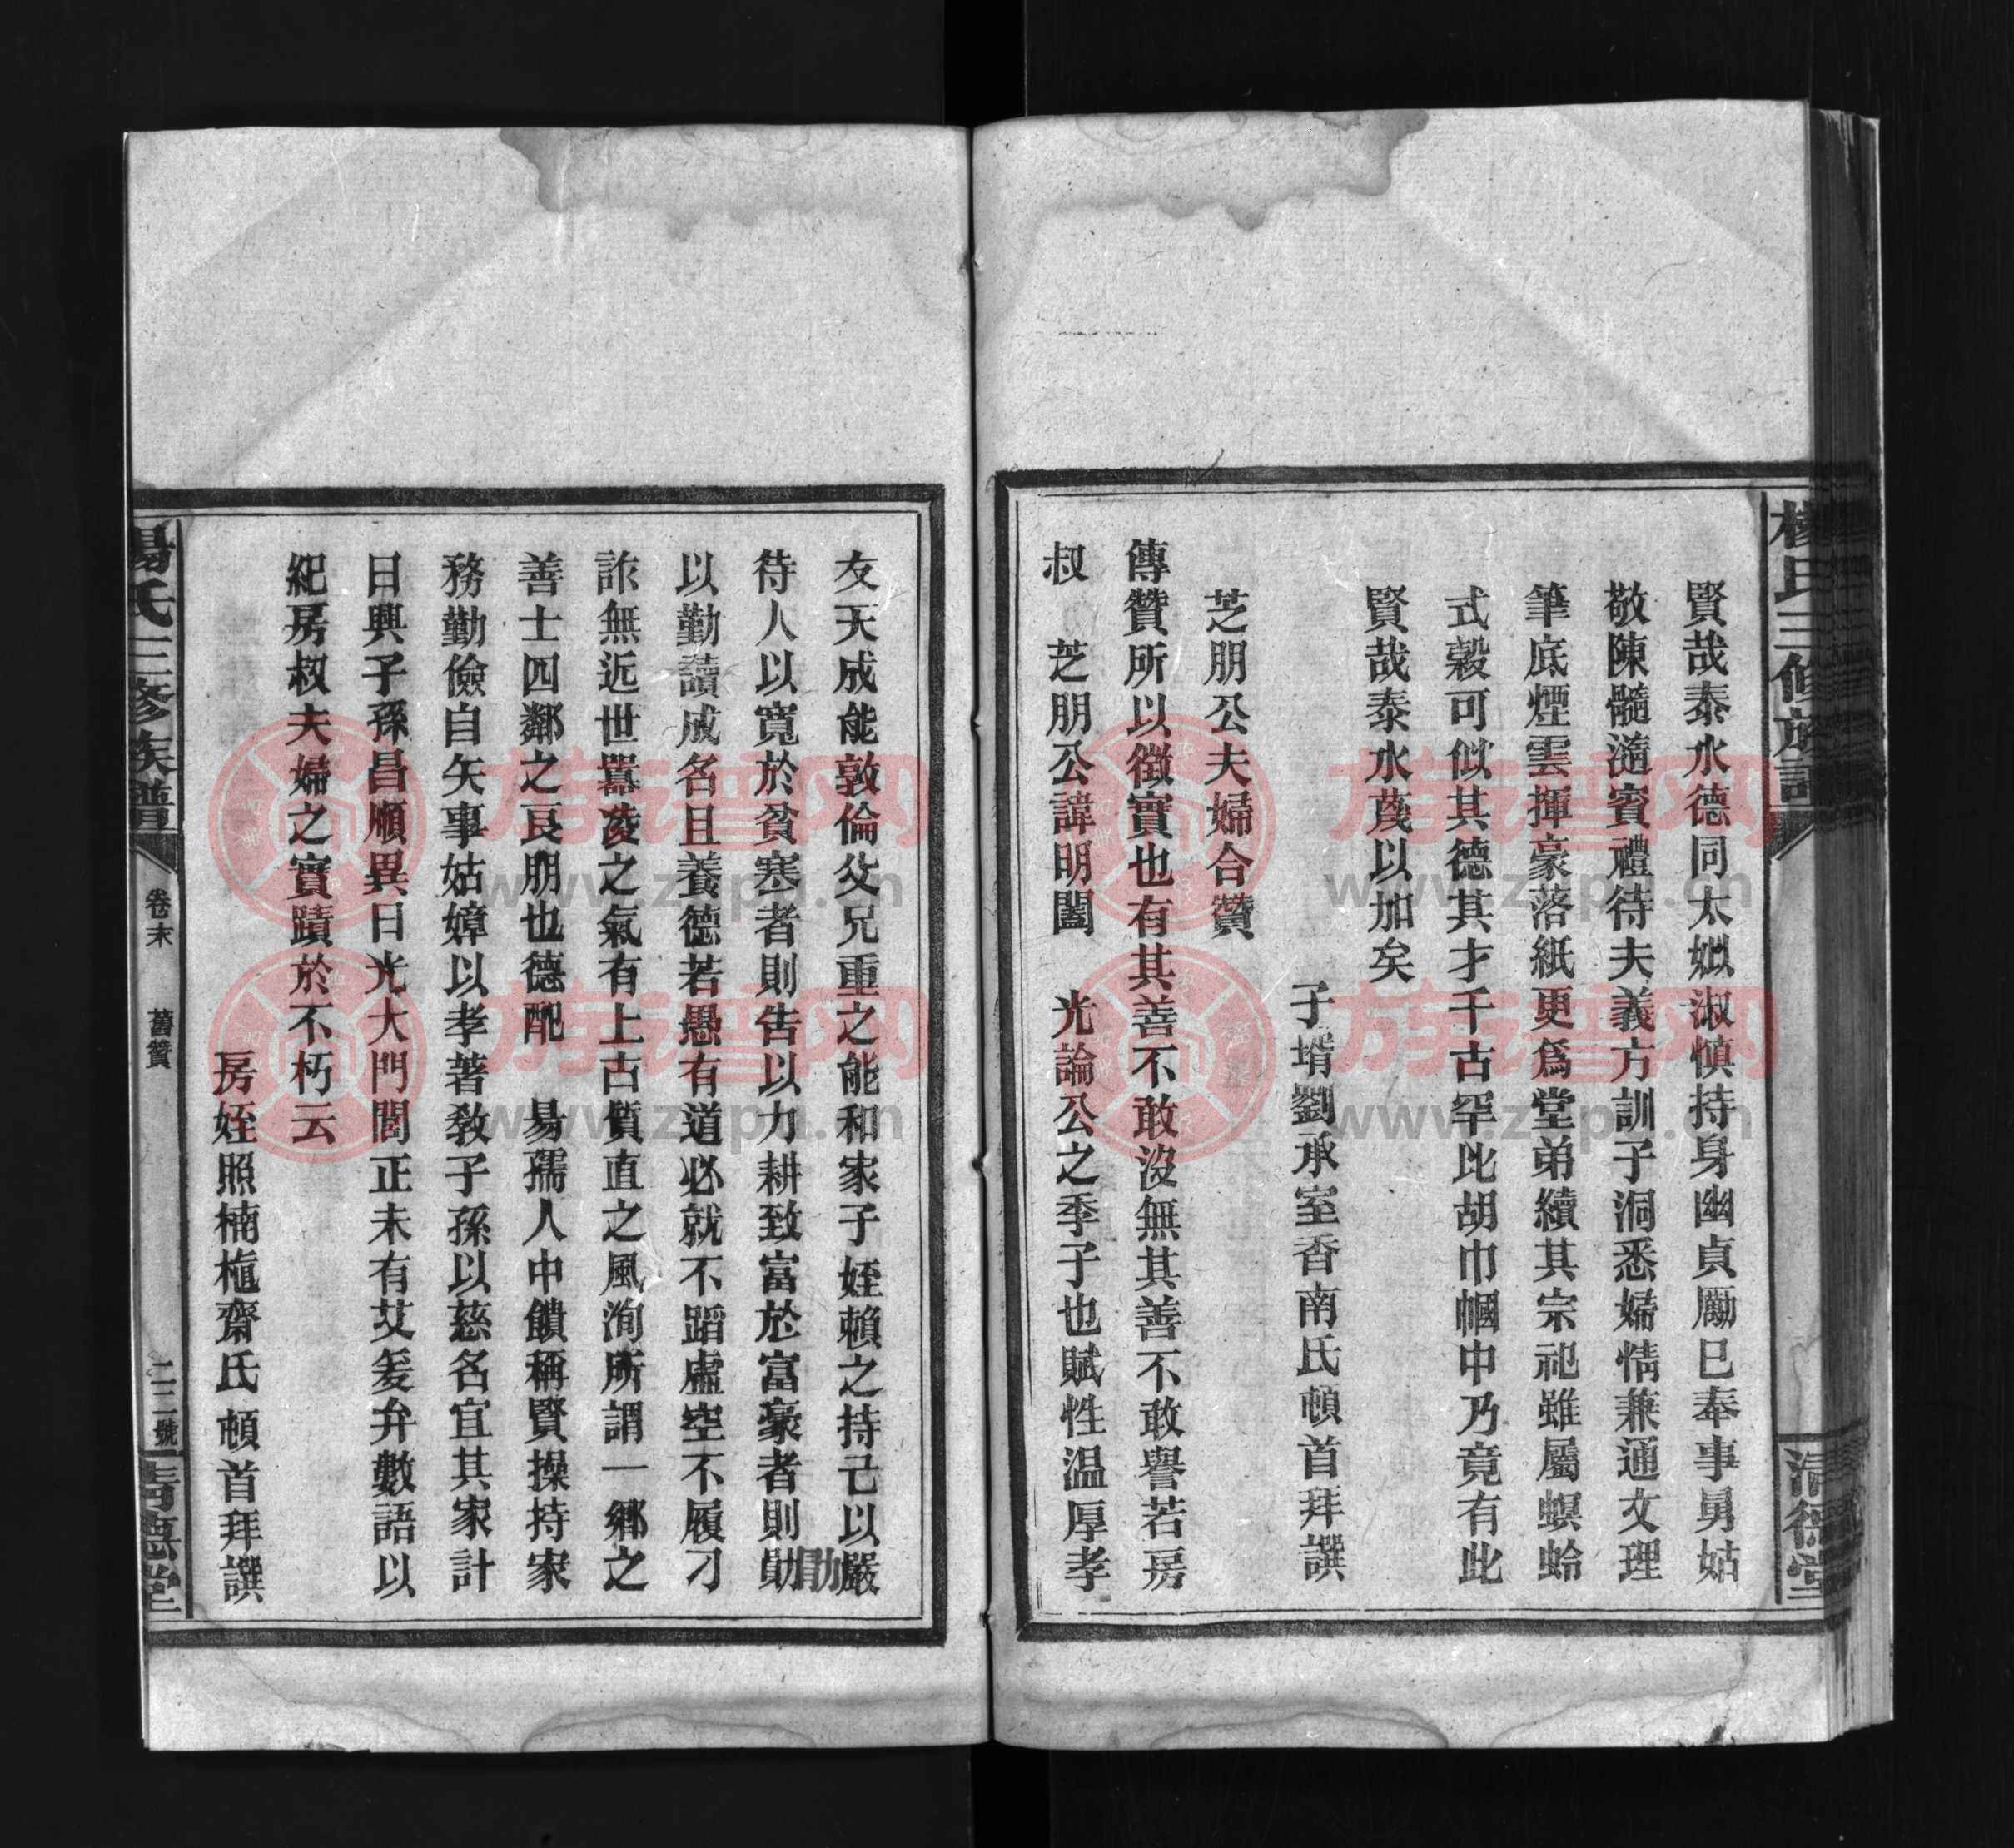 楊氏三修族譜
清德堂
賢哉泰水德同太姒淑慎持身幽貞勵巳奉事舅姑
敬陳髓瀡賓禮待夫義方訓子洞悉婦情兼通文理
筆底煙雲揮豪落紙更爲堂弟續其宗祀雖屬螟蛉
式穀可似其德其才千古罕比胡巾幗中乃竟有此
賢哉泰水蔑以加矣
子壻劉承室香南氏頓首拜譔
芝朋公夫婦合贊
傳贊所以徵實也有其善不敢沒無其善不敢譽若房
叔　芝朋公諱明闓　光論公之季子也賦性温厚孝
友天成能敦倫父兄重之能和家子姪賴之持己以嚴
待人以寬於貧塞者則告以力耕致富於富豪者則勛勖
以勤讀成名且養德若愚有道必就不蹈虛空不履刁
訛無近世囂凌之氣有上古質直之風洵所謂一鄉之
善士四鄰之良朋也德配　易孺人中饋稱賢操持家
務勤儉自矢事姑嫜以孝著教子孫以慈名宜其家計
日興子孫昌順異日光大門閭正未有艾爰弁數語以
紀房叔夫婦之實蹟於不朽云
房姪照楠櫙齋氏頓首拜譔
楊氏三修族譜
卷末
舊贊
二二號
清德堂
族譜网
www.zupu.cn
族譜网
www.zupu.cn
族譜网
www.zupu.cn
族譜网
www.zupu.cn